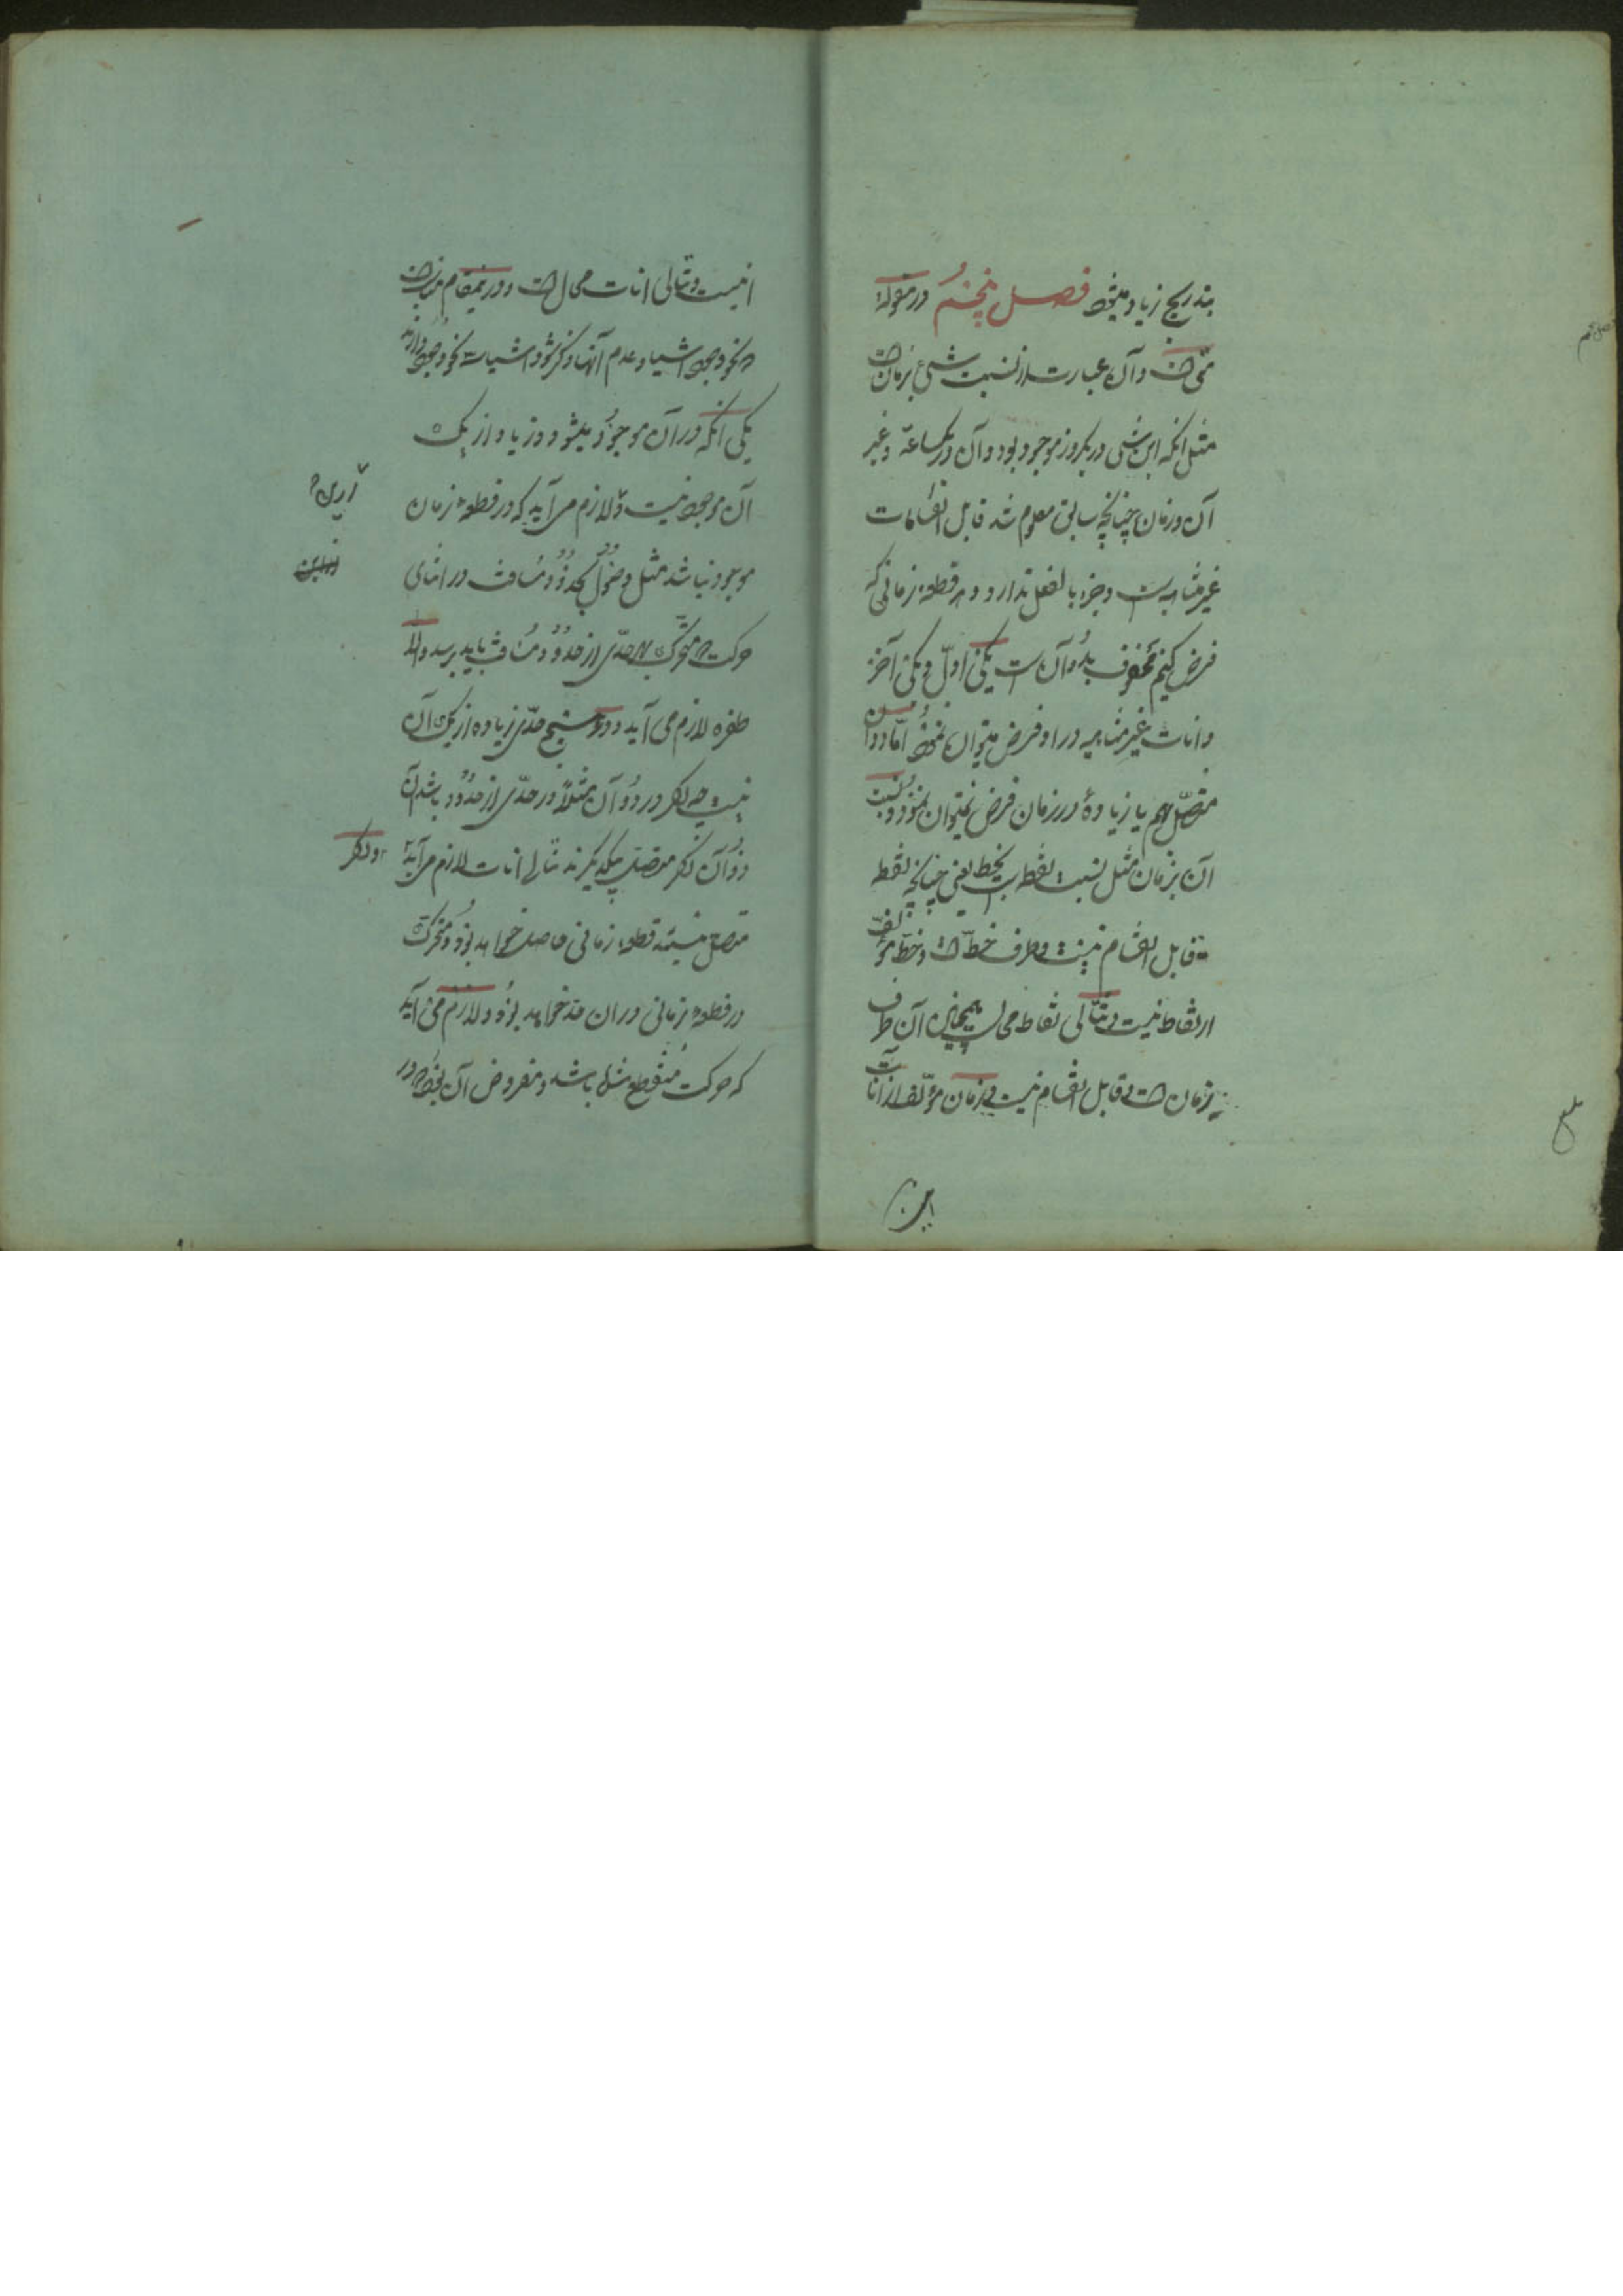 بتدریج زیاد میشود فصل پنجم در مقوله
متی است و آن عبارت از نسبت شیئ بزمان است
مثل انکه این شی در یکروز موجود بود و آن در یکساعة و غیر
آن و زمان چنانچه سابق معلوم شد قابل انقسامات
غیر متناهیه است و جزء بالفعل ندارد و هر قطعه زمانی که
فرض کنیم محفوف بدو آن است یکی اول و یکی آخر
و انات غیر متناهیه در او فرض میتوان نمود اما دو آن
متصل بهم یا زیاده در زمان فرض نمیتوان نمود و نسبت
آن بزمان مثل نسبت نقطه است بخط یعنی چنانچه نقطه
قابل انقسام نیست و طرف خط است و خط مؤلف
از نقاط نیست و تتالی نقاط محال است همچنین آن طرف
زمان است و قابل انقسام نیست و زمان مؤلف از انات
این
فصل پنجم
انیست و تتالی انات محال است و در نمقام مناسب است
نحو وجود اشیا و عدم آنها ذکر شود اشیا سه نحو وجود دارند
یکی انکه در آن موجود میشود و زیاد از یک
آن موجود نیست و لازم می آید که در قطعه زمان
موجود نباشد مثل وصول بحدود مسافت در اثنای
حرکت چه متحرک بهر حدی از حدود مسافت باید برسد والا
طفره لازم می آید و در هیچ حدی زیاده از یک آن
نیست چه اگر در دو آن مثلا در حدی از حدود باشد آن
دو آن اگر متصل بیکدیگرند تتالی انات لازم می آید و اگر
متصل نیستند قطعه زمانی فاصله خواهد بود و متحرک
در قطعه زمانی در ان حد خواهد بود و لازم می آید
که حرکت منقطع شده باشد و مفروض آن بود که در